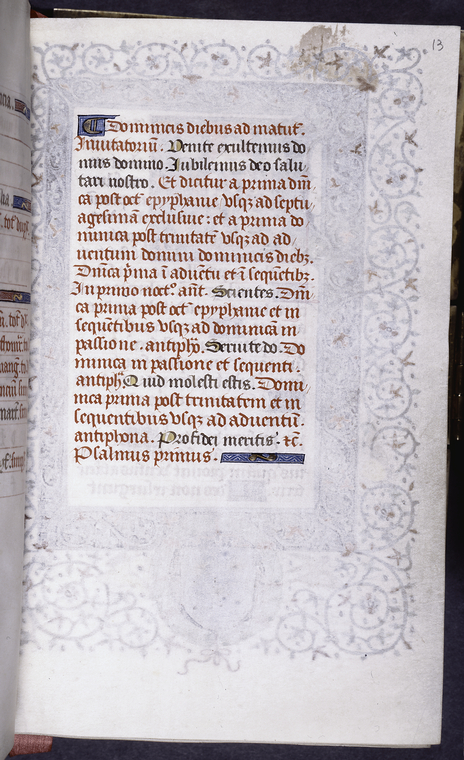 13
Dominicis diebus ad matut̄.
Inuitatoriū. Uenite exultemus do
mino domino. Iubilemus deo salu
tari nostro. Et dicitur a prima dm̄i
ca post oct̄ epyphanie vsq̄ ad septu
agesimam exclusiue: et a prima do
minica post trinitatē vsq̄ ad ad
uentum domini dominicis dieb3.
Dm̄ica p̄ma ī aduētu et ī sequētib3.
In primo noct.° ant̄. Scientes. Dm̄i
ca prima post oct̄ epyphanie et in
sequētibus vsq̄ ad dominicā in
passione. antipho. Seruite do. Do
minica in passione et sequenti.
antipho Quid molesti estis. Domi
nica prima post trinitatem et in
sequentibus vsq̄ ad aduentū.
antiphona. Pro fidei meritis. τc̄.
Psalmus primus.